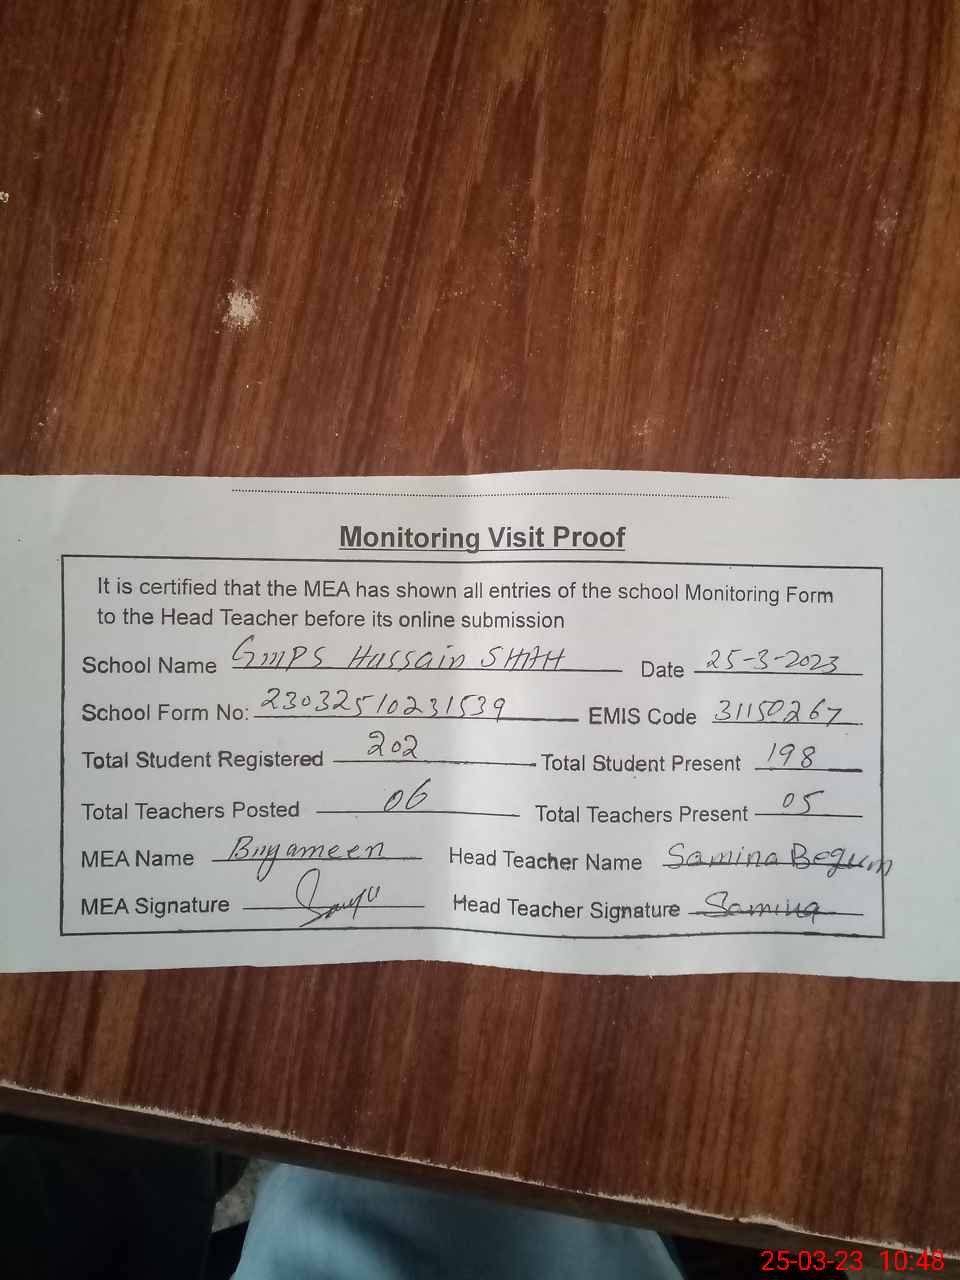 Monitoring Visit Proof
It is certified that the MEA has shown all entries of the school Monitoring Form
to the Head Teacher before its online submission
School Name GMPS Hussain SHAH Date 25-3-2023
School Form No: 23032510231539 EMIS Code 31150267
Total Student Registered 202 Total Student Present 198
Total Teachers Posted 06 Total Teachers Present 05
MEA Name Binyameen Head Teacher Name Samina Begum
MEA Signature Head Teacher Signature Samina
25-03-23 10:48